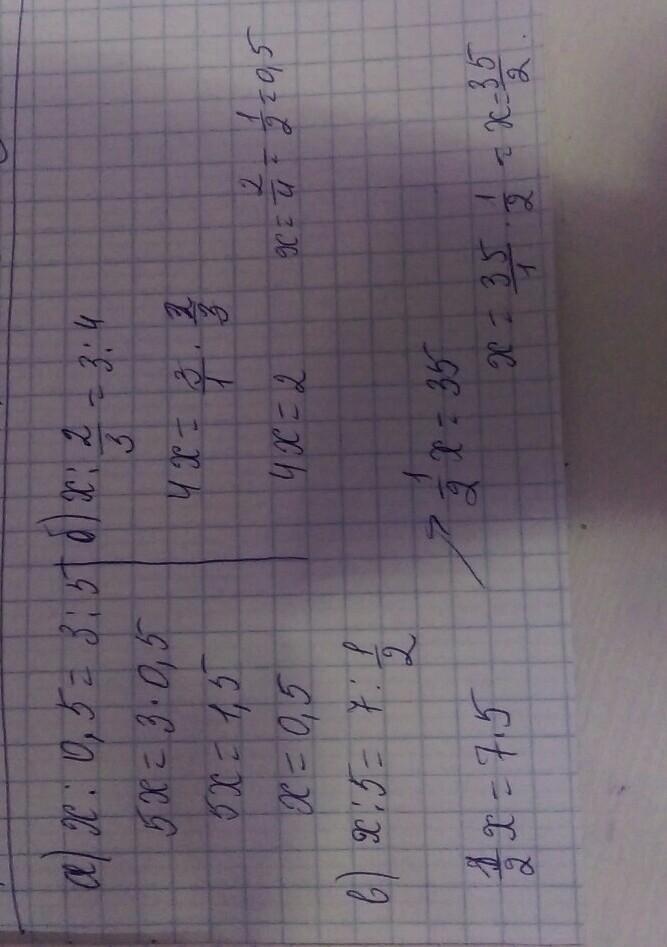 а) x : 0,5 = 3 : 5
5x = 3 · 0,5
5x = 1,5
x = 0,5
б) x : 2/3 = 3 : 4
4x = 3/1 · 2/3
4x = 2
x = 2/4 = 1/2 = 0,5
в) x : 5 = 7 : 1/2
1/2 x = 7.5
1/2 x = 35
x = 35/1 · 1/2 = x = 35/2.